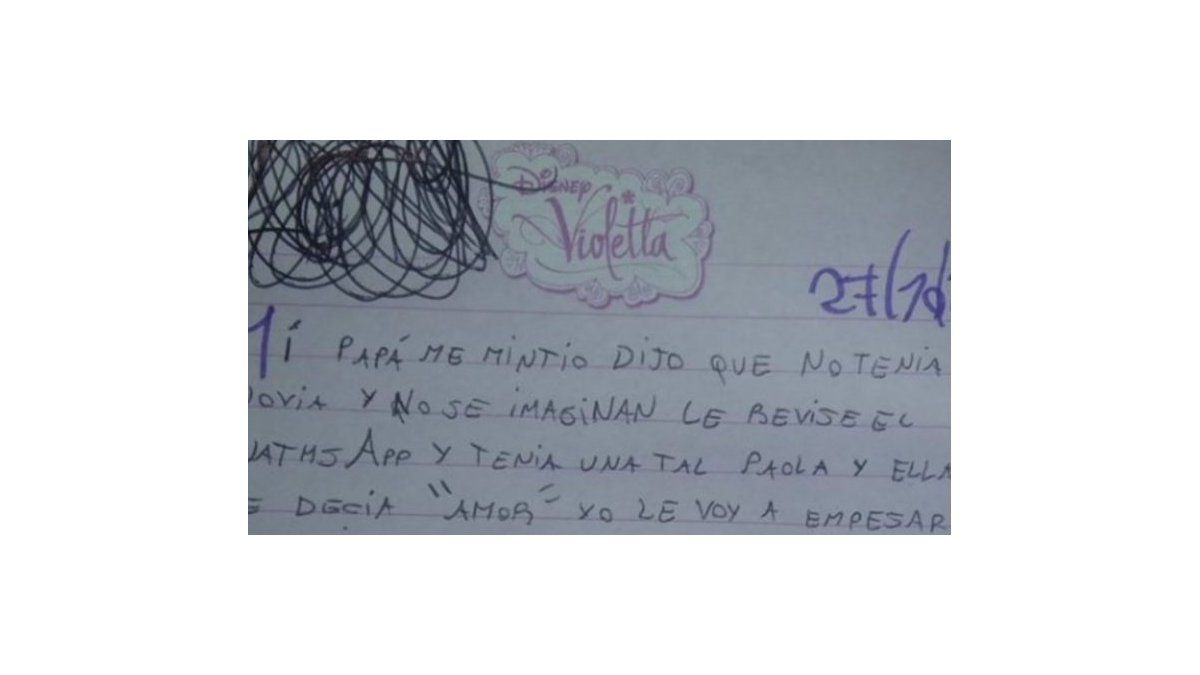 Disney
Violetta
27/10/
Mí PAPÁ ME MINTIO DIJO QUE NO TENIA
OVIA Y NO SE IMAGINAN LE REVISE EL
ATHSAPP Y TENIA UNA TAL PAOLA Y ELLA
E DECIA "AMOR" YO LE VOY A EMPESAR